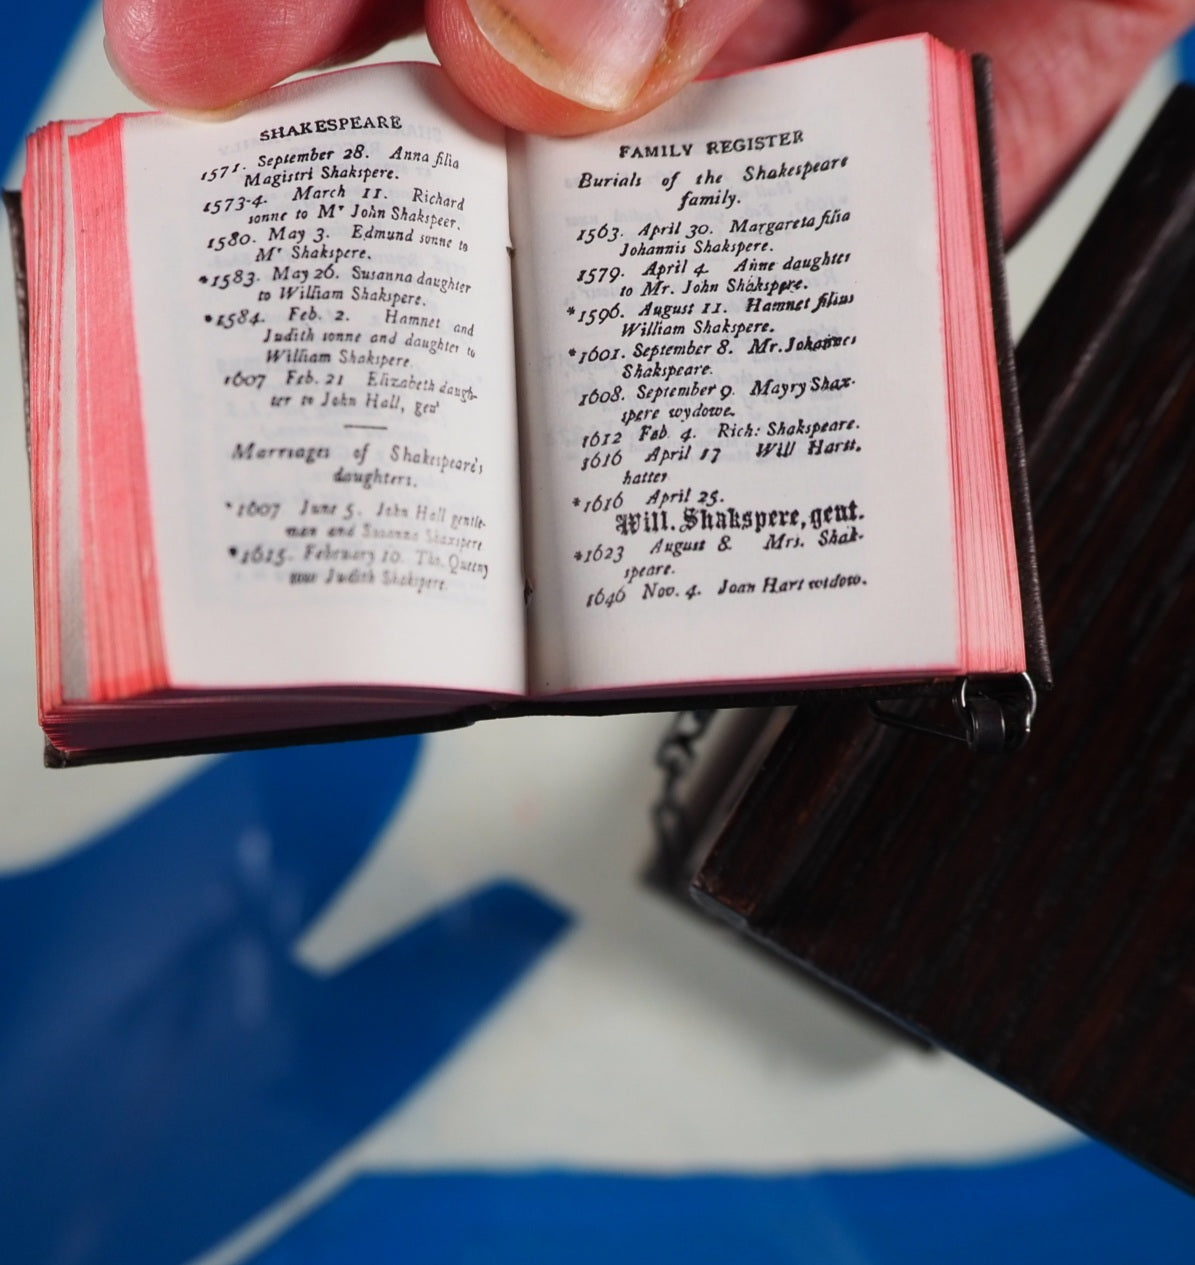 SHAKESPEARE
1571. September 28. Anna filia
Magistri Shakspere.
1573-4. March 11. Richard
sonne to Mr John Shakspeer.
1580. May 3. Edmund sonne to
Mr Shakspere.
*1583. May 26. Susanna daughter
to William Shakspere.
*1584. Feb. 2. Hamnet and
Judith sonne and daughter to
William Shakspere.
1607 Feb. 21 Elizabeth daugh-
ter to John Hall, gen'
Marriages of Shakespeare's
daughters.
*1607 June 5. John Hall gentle-
man and Susanna Shaxspere
*1615. February 10. Tho. Queeny
tow Judith Shakspere.
FAMILY REGISTER
Burials of the Shakespeare
family.
1563. April 30. Margareta filia
Johannis Shakspere.
1579. April 4. Anne daughter
to Mr. John Shakspere.
*1596. August 11. Hamnet filius
William Shakspere.
*1601. September 8. Mr. Johannes
Shakspeare.
1608. September 9. Mayry Shax-
spere wydowe.
1612 Feb. 4. Rich: Shakspeare.
1616 April 17 Will Hartt.
hatter
*1616 April 25.
Will. Shakspere, gent.
*1623 August 8. Mrs. Shak-
speare.
1646 Nov. 4. Joan Hart widow.